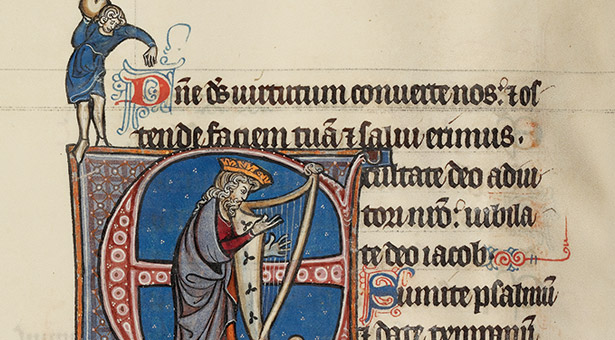 Dn̄e ds̄ uirtutum conuerte nos: ⁊ os
tende faciem tuā ⁊ salui erimus.
Exultate deo adiu
tori nr̄o: iubila
te deo iacob.
Sumite psalmū
⁊ date tympanū